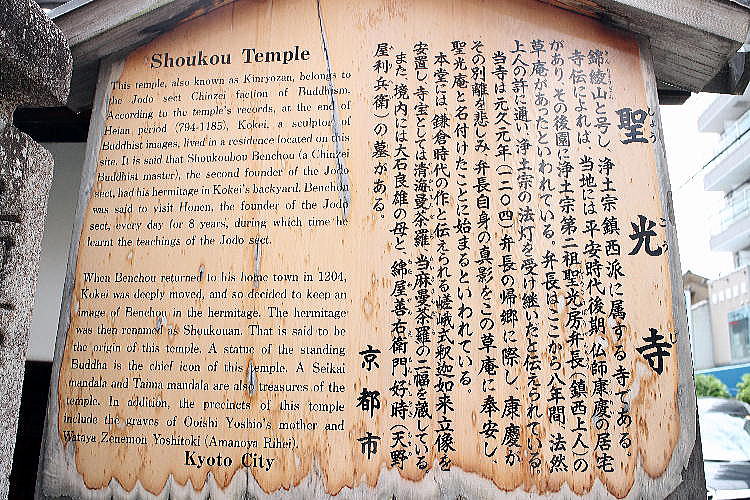 聖光寺
しょうこうじ
錦綾山と号し、浄土宗鎮西派に属する寺である。
寺伝によれば、当地には平安時代後期、仏師康慶の居宅
があり、その後園に浄土宗第二祖聖光房弁長（鎮西上人）の
草庵があったといわれている。弁長はここから八年間、法然
上人の許に通い、浄土宗の法灯を受け継いだと伝えられている。
当寺は元久元年（一二〇四）弁長の帰郷に際し、康慶が
その別離を悲しみ、弁長自身の真影をこの草庵に奉安し、
聖光庵と名付けたことに始まるといわれている。
本堂には、鎌倉時代の作と伝えられる嵯峨式釈迦如来立像を
安置し、寺宝としては清海曼荼羅、当麻曼荼羅の二幅を蔵している。
また、境内には大石良雄の母と、綿屋善右衛門好時（天野
屋利兵衛）の墓がある。
京都市
Shoukou Temple
This temple, also known as Kinryozan, belongs to
the Jodo sect Chinzei faction of Buddhism.
According to the temple's records, at the end of
Heian period (794-1185), Kokei, a sculptor of
Buddhist images, lived in a residence located on this
site. It is said that Shoukoubou Benchou (a Chinzei
Buddhist master), the second founder of the Jodo
sect, had his hermitage in Kokei's backyard. Benchou
was said to visit Honen, the founder of the Jodo
sect, every day for 8 years, during which time he
learnt the teachings of the Jodo sect.
When Benchou returned to his home town in 1204,
Kokei was deeply moved, and so decided to keep an
image of Benchou in the hermitage. The hermitage
was then renamed as Shoukouan. That is said to be
the origin of this temple. A statue of the standing
Buddha is the chief icon of this temple. A Seikai
mandala and Taima mandala are also treasures of the
temple. In addition, the precincts of this temple
include the graves of Ooishi Yoshio's mother and
Wataya Zenemon Yoshitoki (Amanoya Rihei).
Kyoto City